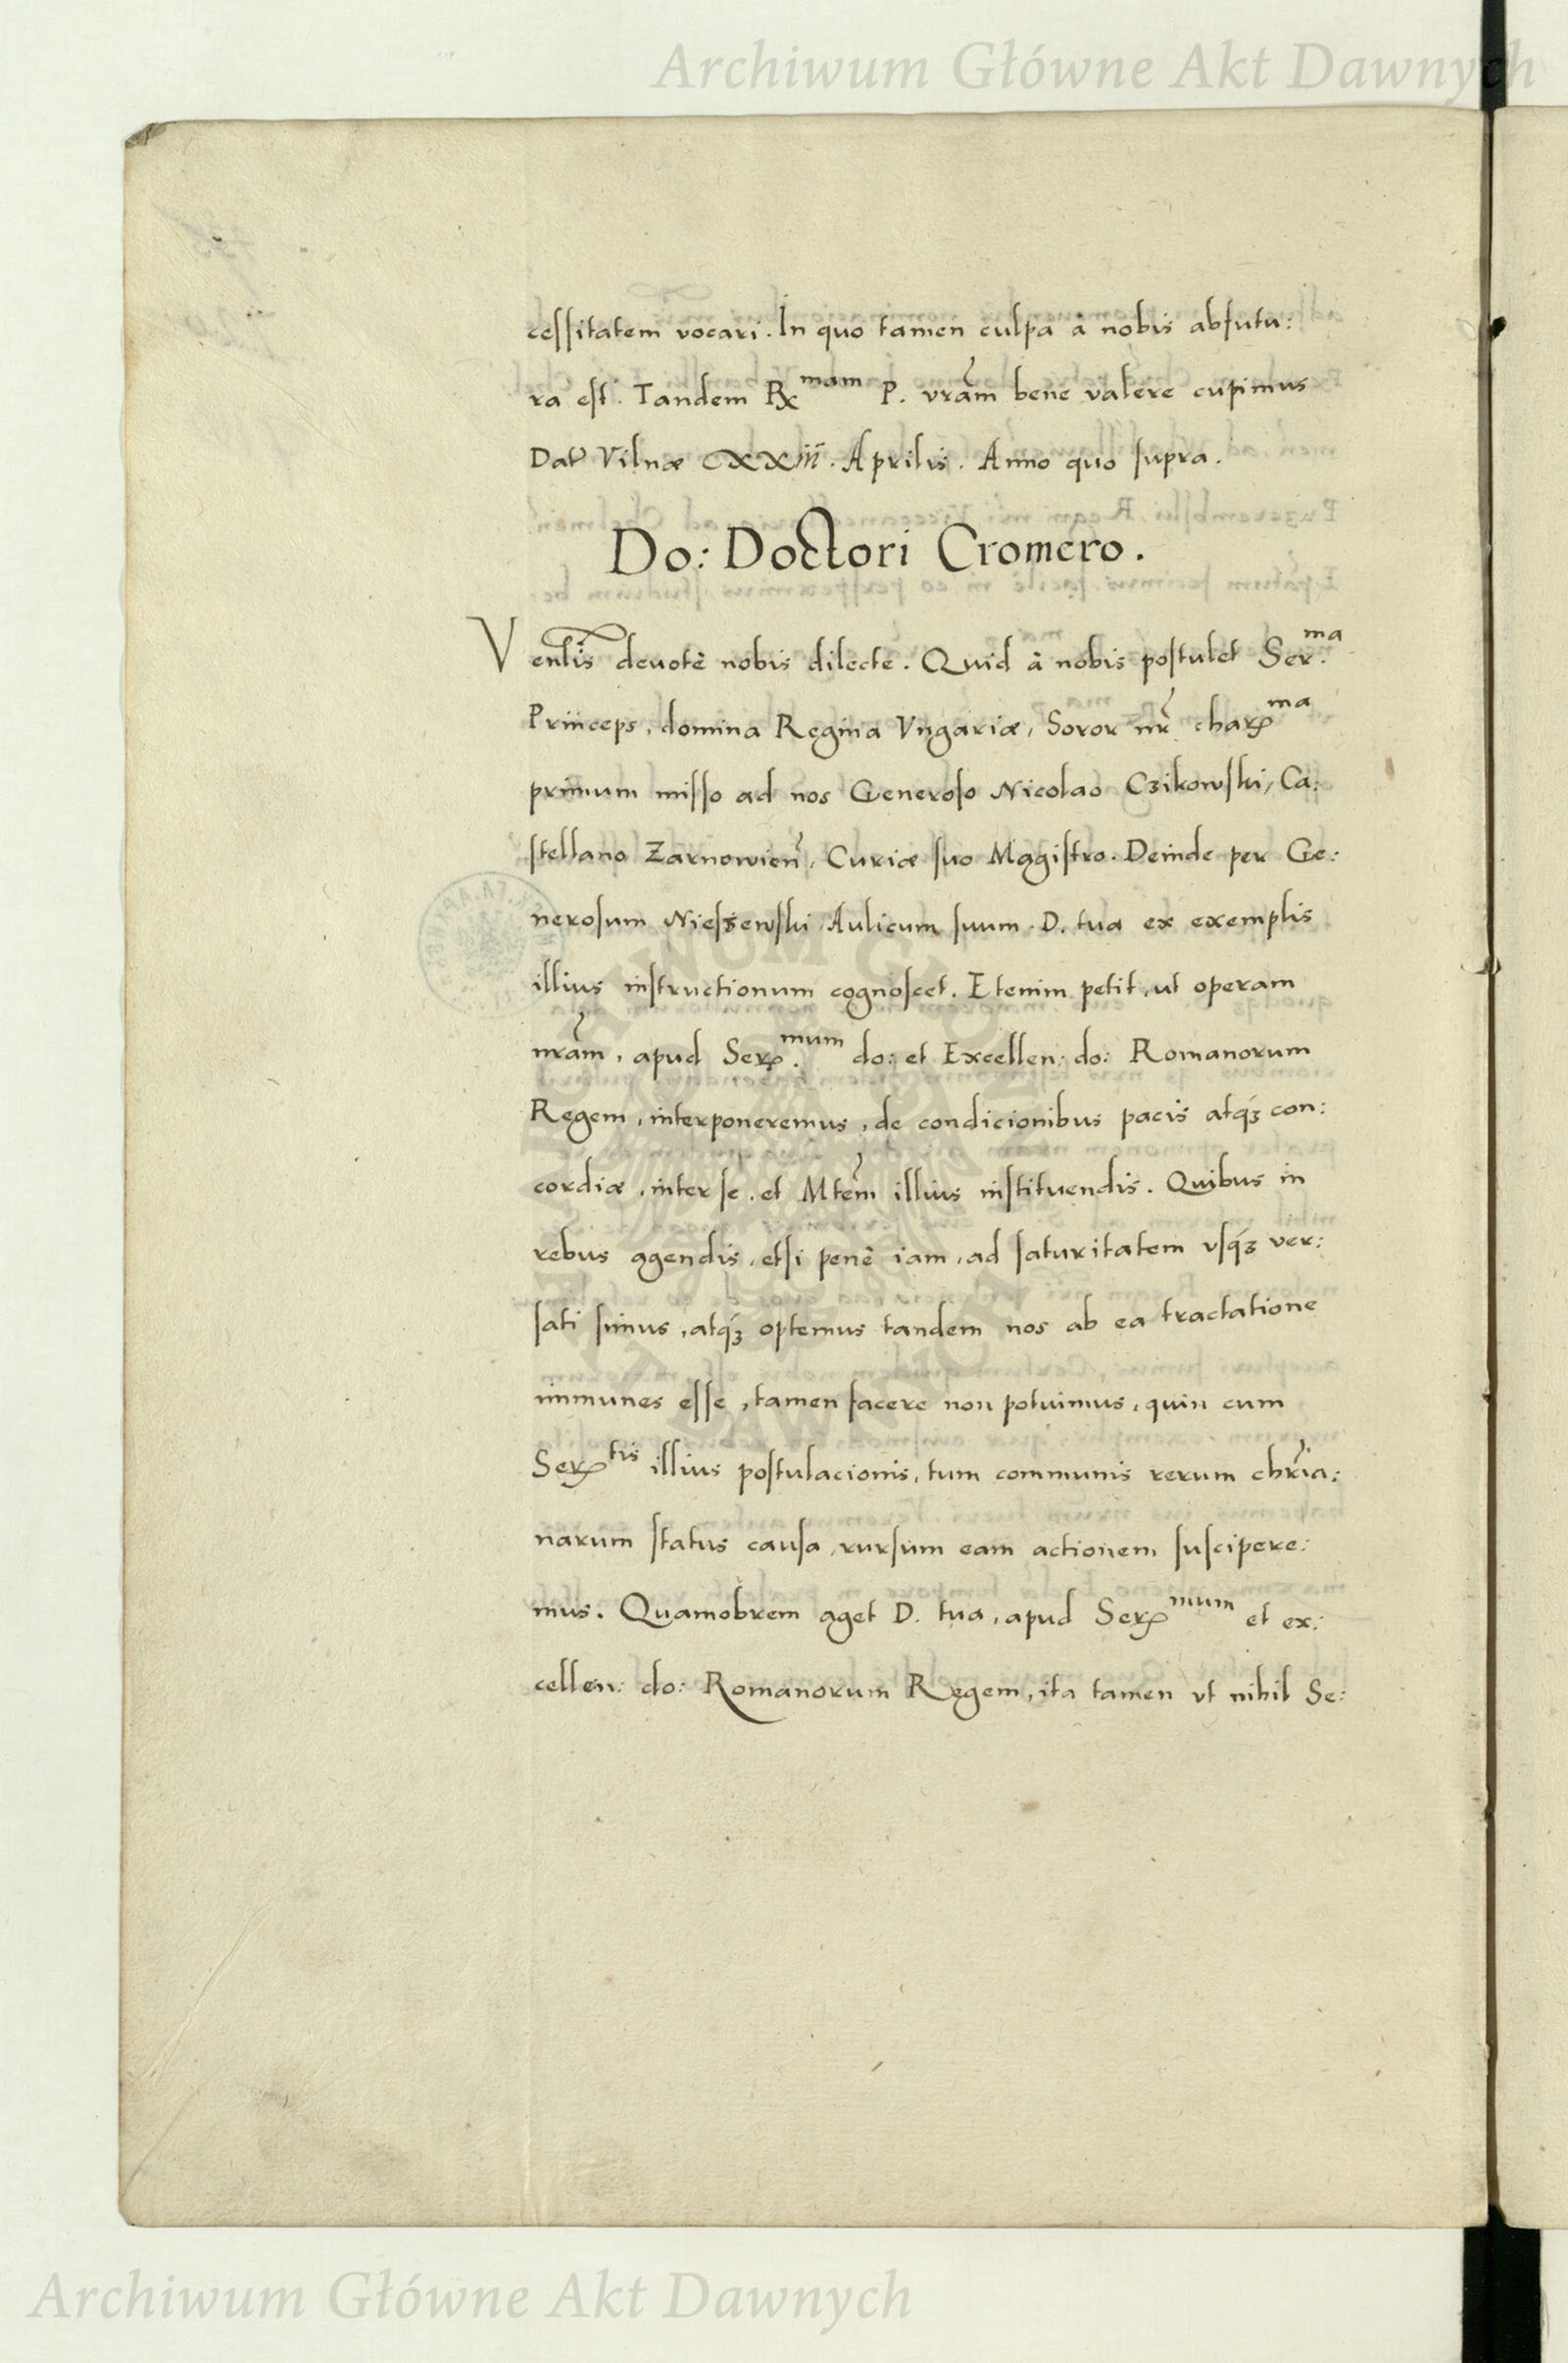 Archiwum Główne Akt Dawnych
cessitatem vocari. In quo tamen culpa à nobis absutu:
ra est. Tandem Rx^mam P. vram̃ bene valere cupimus
Dat̃ Vilnæ xxiii. Aprilis. Anno quo supra.
Do: Doctori Cromero.
Venlis deuotè nobis dilecte. Quid à nobis postulet Ser.^ma
Princeps, domina Regina Vngariæ, Soror nr̃ char^ma
primum misso ad nos Generoso Nicolao Czikowski, Ca:
stellano Zarnowien̄, Curiæ suo Magistro. Deinde per Ge:
nerosum Nieszewski Aulicum suum. D. tua ex exemplis
illius instructionum cognoscet. Etenim petit, ut operam
nram̃, apud Ser.^mum do: et Excellen: do: Romanorum
Regem, interponeremus, de condicionibus pacis atq́ꝫ con:
cordiæ, inter se, et Mtem̃ illius instituendis. Quibus in
rebus agendis, etsi penè iam, ad saturitatem vsq́ꝫ ver:
sati simus, atq́ꝫ optemus tandem nos ab ea tractatione
immunes esse, tamen facere non potuimus, quin cum
Ser^tis illius postulacionis, tum communis rerum chr̃ia:
narum status causa, rursum eam actionem suscipere:
mus. Quamobrem aget D. tua, apud Ser^mum et ex:
cellen: do: Romanorum Regem, ita tamen vt nihil Se:
Archiwum Główne Akt Dawnych